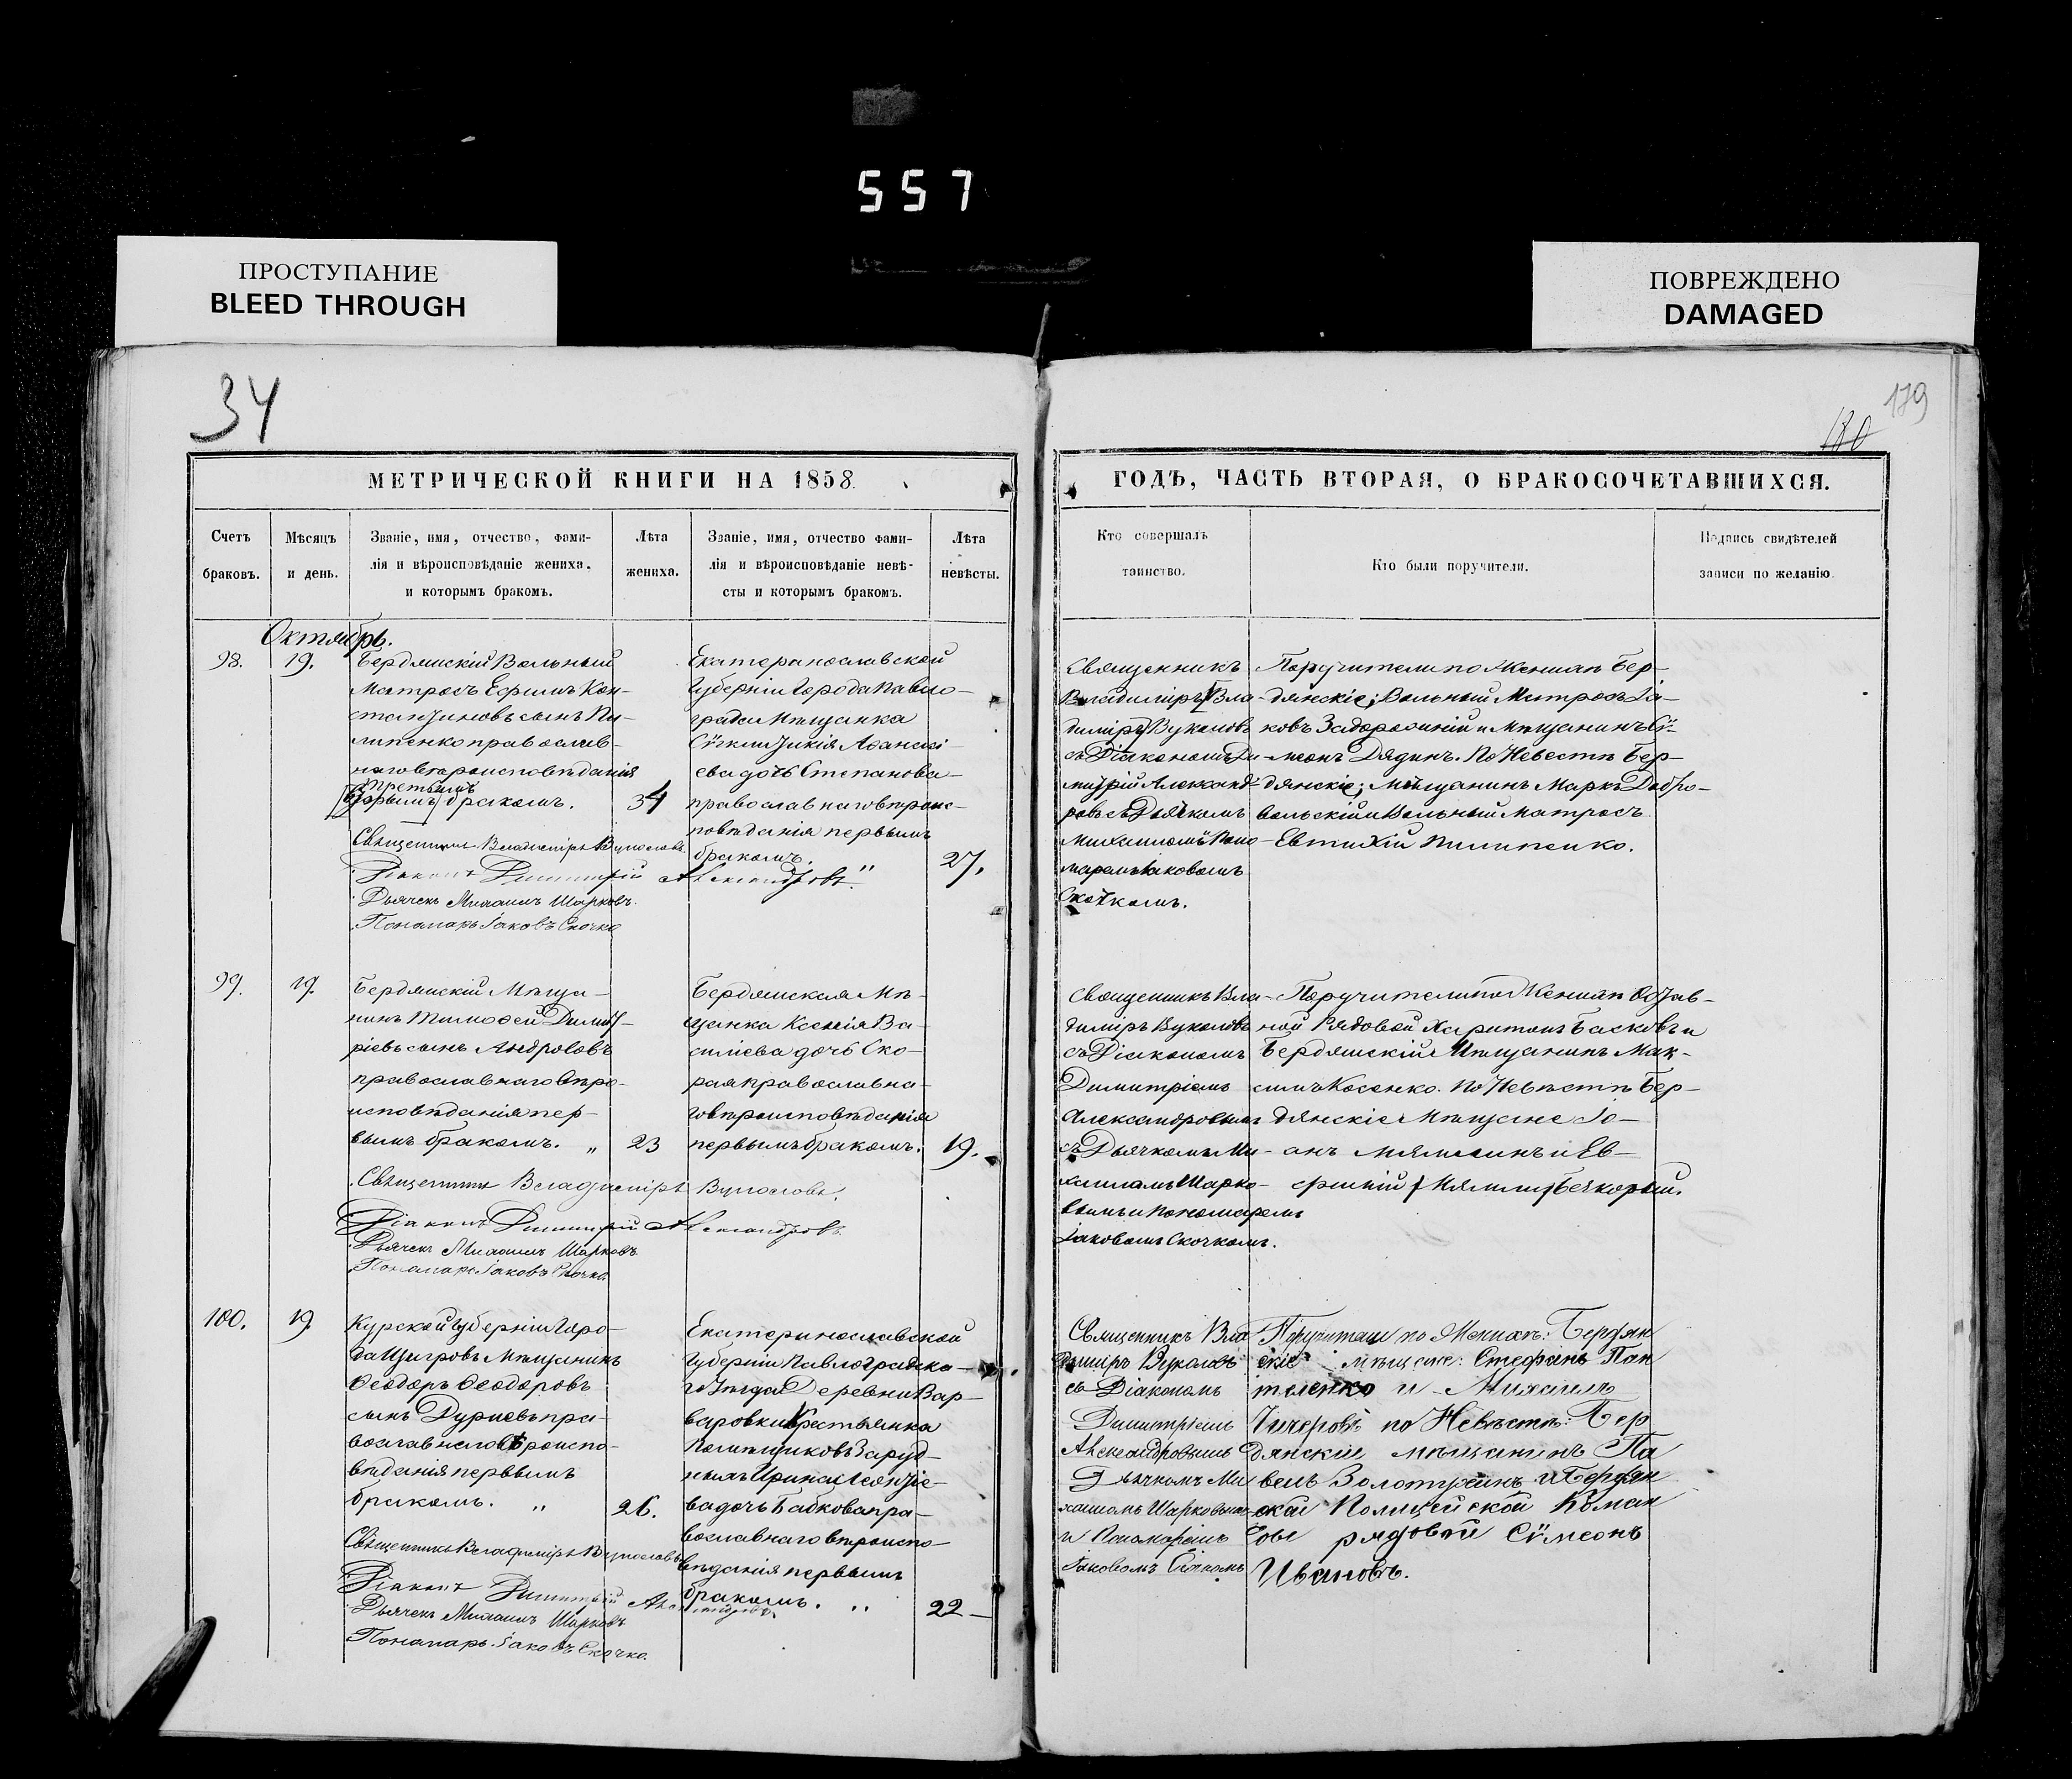 557
ПРОСТУПАНИЕ
BLEED THROUGH
ПОВРЕЖДЕНО
DAMAGED
34
179
180
МЕТРИЧЕСКОЙ КНИГИ НА 1858.
ГОДЪ, ЧАСТЬ ВТОРАЯ, О БРАКОСОЧЕТАВШИХСЯ.
Счетъ
браковъ.
Мѣсяцъ
и день.
Званіе, имя, отчество, фами-
лія и вѣроисповѣданіе жениха,
и которымъ бракомъ.
Лѣта
жениха.
Званіе, имя, отчество фами-
лія и вѣроисповѣданіе невѣ-
сты и которымъ бракомъ.
Лѣта
невѣсты.
Кто совершалъ
таинство.
Кто были поручители.
Подпись свидѣтелей
записи по желанію.
Октябрь.
98.
19.
Бердянскій Вольный
Матросъ Ефимъ Кон-
стантиновъ сынъ Пи-
липенко православ-
наго вѣроисповѣданія
третьимъ
[вторымъ] бракомъ.
34
Священникъ Владиміръ Вуколовъ
Діаконъ Димитрій Александровъ.
Дьячекъ Михаилъ Шарковъ.
Пономарь Іаковъ Скочко
Екатеринославской
Губерніи Города Павло-
града Мѣщанка
Сѵнклитикія Аѳанасі-
ева дочь Степанова
православнаго вѣроис-
повѣданія первымъ
бракомъ. "
27.
Священникъ
Владиміръ [Вла-
диміръ] Вуколовъ
съ Діакономъ Ди-
митрій Александ-
ровъ съ Дьячкомъ
Михаиломъ Поно-
маремъ Іаковомъ
Скочкомъ.
Поручители по Женихѣ Бер-
дянскіе; Вольный Матросъ Іа-
ковъ Задорожній и Мѣщанинъ Сѵ-
меонъ Дядинъ. По Невестѣ Бер-
дянскіе; Мѣщанинъ Маркъ Добро-
вольскій и Вольный Матросъ
Евтихій Пилипенко.
99.
19.
Бердянскій Мѣща-
нинъ Тимоѳей Димит-
ріевъ сынъ Андросовъ
православнаго вѣро-
исповѣданія пер-
вымъ бракомъ. "
23
Священникъ Владиміръ Вуколовъ.
Діаконъ Димитрій Александровъ.
Дьячекъ Михаилъ Шарковъ
Пономарь Іаковъ Скочко
Бердянская Мѣ-
щанка Ксенія Ва-
силіева дочь Ско-
рая православна-
го вѣроисповѣданія
первымъ бракомъ.
19.
Священникъ Вла-
диміръ Вуколовъ
съ Діакономъ
Димитріемъ
Александровымъ
съ Дьячкомъ Ми-
хаиломъ Шарко-
вымъ и Пономаремъ
Іаковомъ Скочкомъ.
Поручители по Женихѣ Отстав-
ной Рядовой Харитонъ Басковъ и
Бердянскій Мѣщанинъ Мак-
симъ Косенко. По Невѣстѣ Бер-
дянскіе Мѣщане Іо-
анъ
100.
19.
Курской Губерніи Горо-
да Щигровъ Мѣщанинъ
Ѳеодоръ Ѳеодоровъ
сынъ Дурневъ пра-
вославнаго вѣроиспо-
вѣданія первымъ
бракомъ. "
26.
Священникъ Владиміръ Вуколовъ
Діаконъ Димитрій Александровъ.
Дьячекъ Михаилъ Шарковъ
Пономарь Іаковъ Скочко.
Екатеринославской
Губерніи Павлоградска-
го Уѣзда Деревни Вар-
варовки Крестьянка
Помѣщиковъ Заруд-
ныхъ Ирина Леонтіе-
ва дочь Бабкова пра-
вославнаго вѣроиспо-
вѣданія первымъ
бракомъ. "
22
Священникъ Вла
диміръ Вуколовъ
съ Діакономъ
Димитріемъ
Александровымъ
Дьячкомъ Ми
хаиломъ Шарковымъ
и Пономаремъ
Іаковомъ Скочкомъ
Поручители по Женихѣ: Бердян
скіе мѣщане: Стефанъ Пан
теленко и Михаилъ
Чичеровъ по Невѣстѣ: Бер
дянскіи мѣщанинъ Па
велъ и Бердян
ской Полицейской Коман
ды рядовой Сѵмеонъ
Ивановъ.